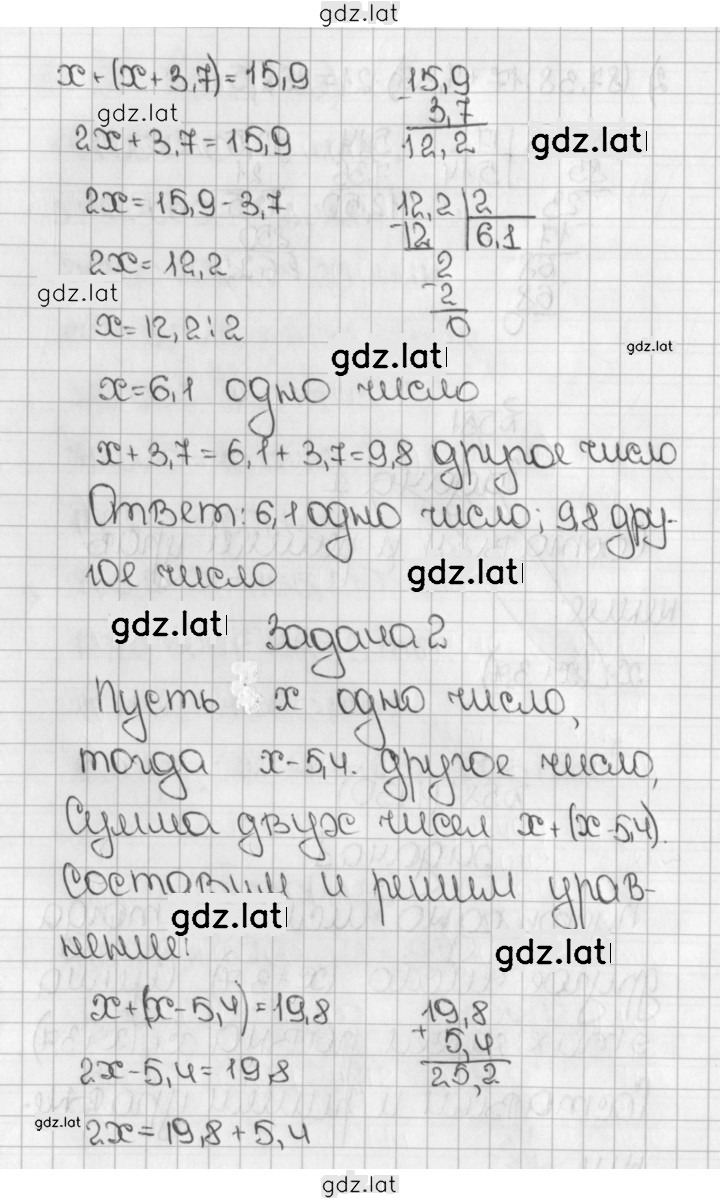 gdz.lat
x+(x+3,7)=15,9
15,9
gdz.lat
- 3,7
2x+3,7=15,9
12,2
gdz.lat
2x=15,9-3,7
12,2 | 2
-12 6,1
2x=12,2
2
gdz.lat
-2
x=12,2:2
0
gdz.lat
gdz.lat
x=6,1 одно число
x+3,7=6,1+3,7=9,8 другое число
Ответ: 6,1 одно число; 9,8 дру-
гое число
gdz.lat
gdz.lat
Задача 2
Пусть x одно число,
тогда x-5,4. другое число,
Сумма двух чисел x+(x-5,4).
Составим и решим урав-
gdz.lat
нение:
gdz.lat
x+(x-5,4)=19,8
19,8
+ 5,4
2x-5,4=19,8
25,2
gdz.lat
2x=19,8+5,4
gdz.lat